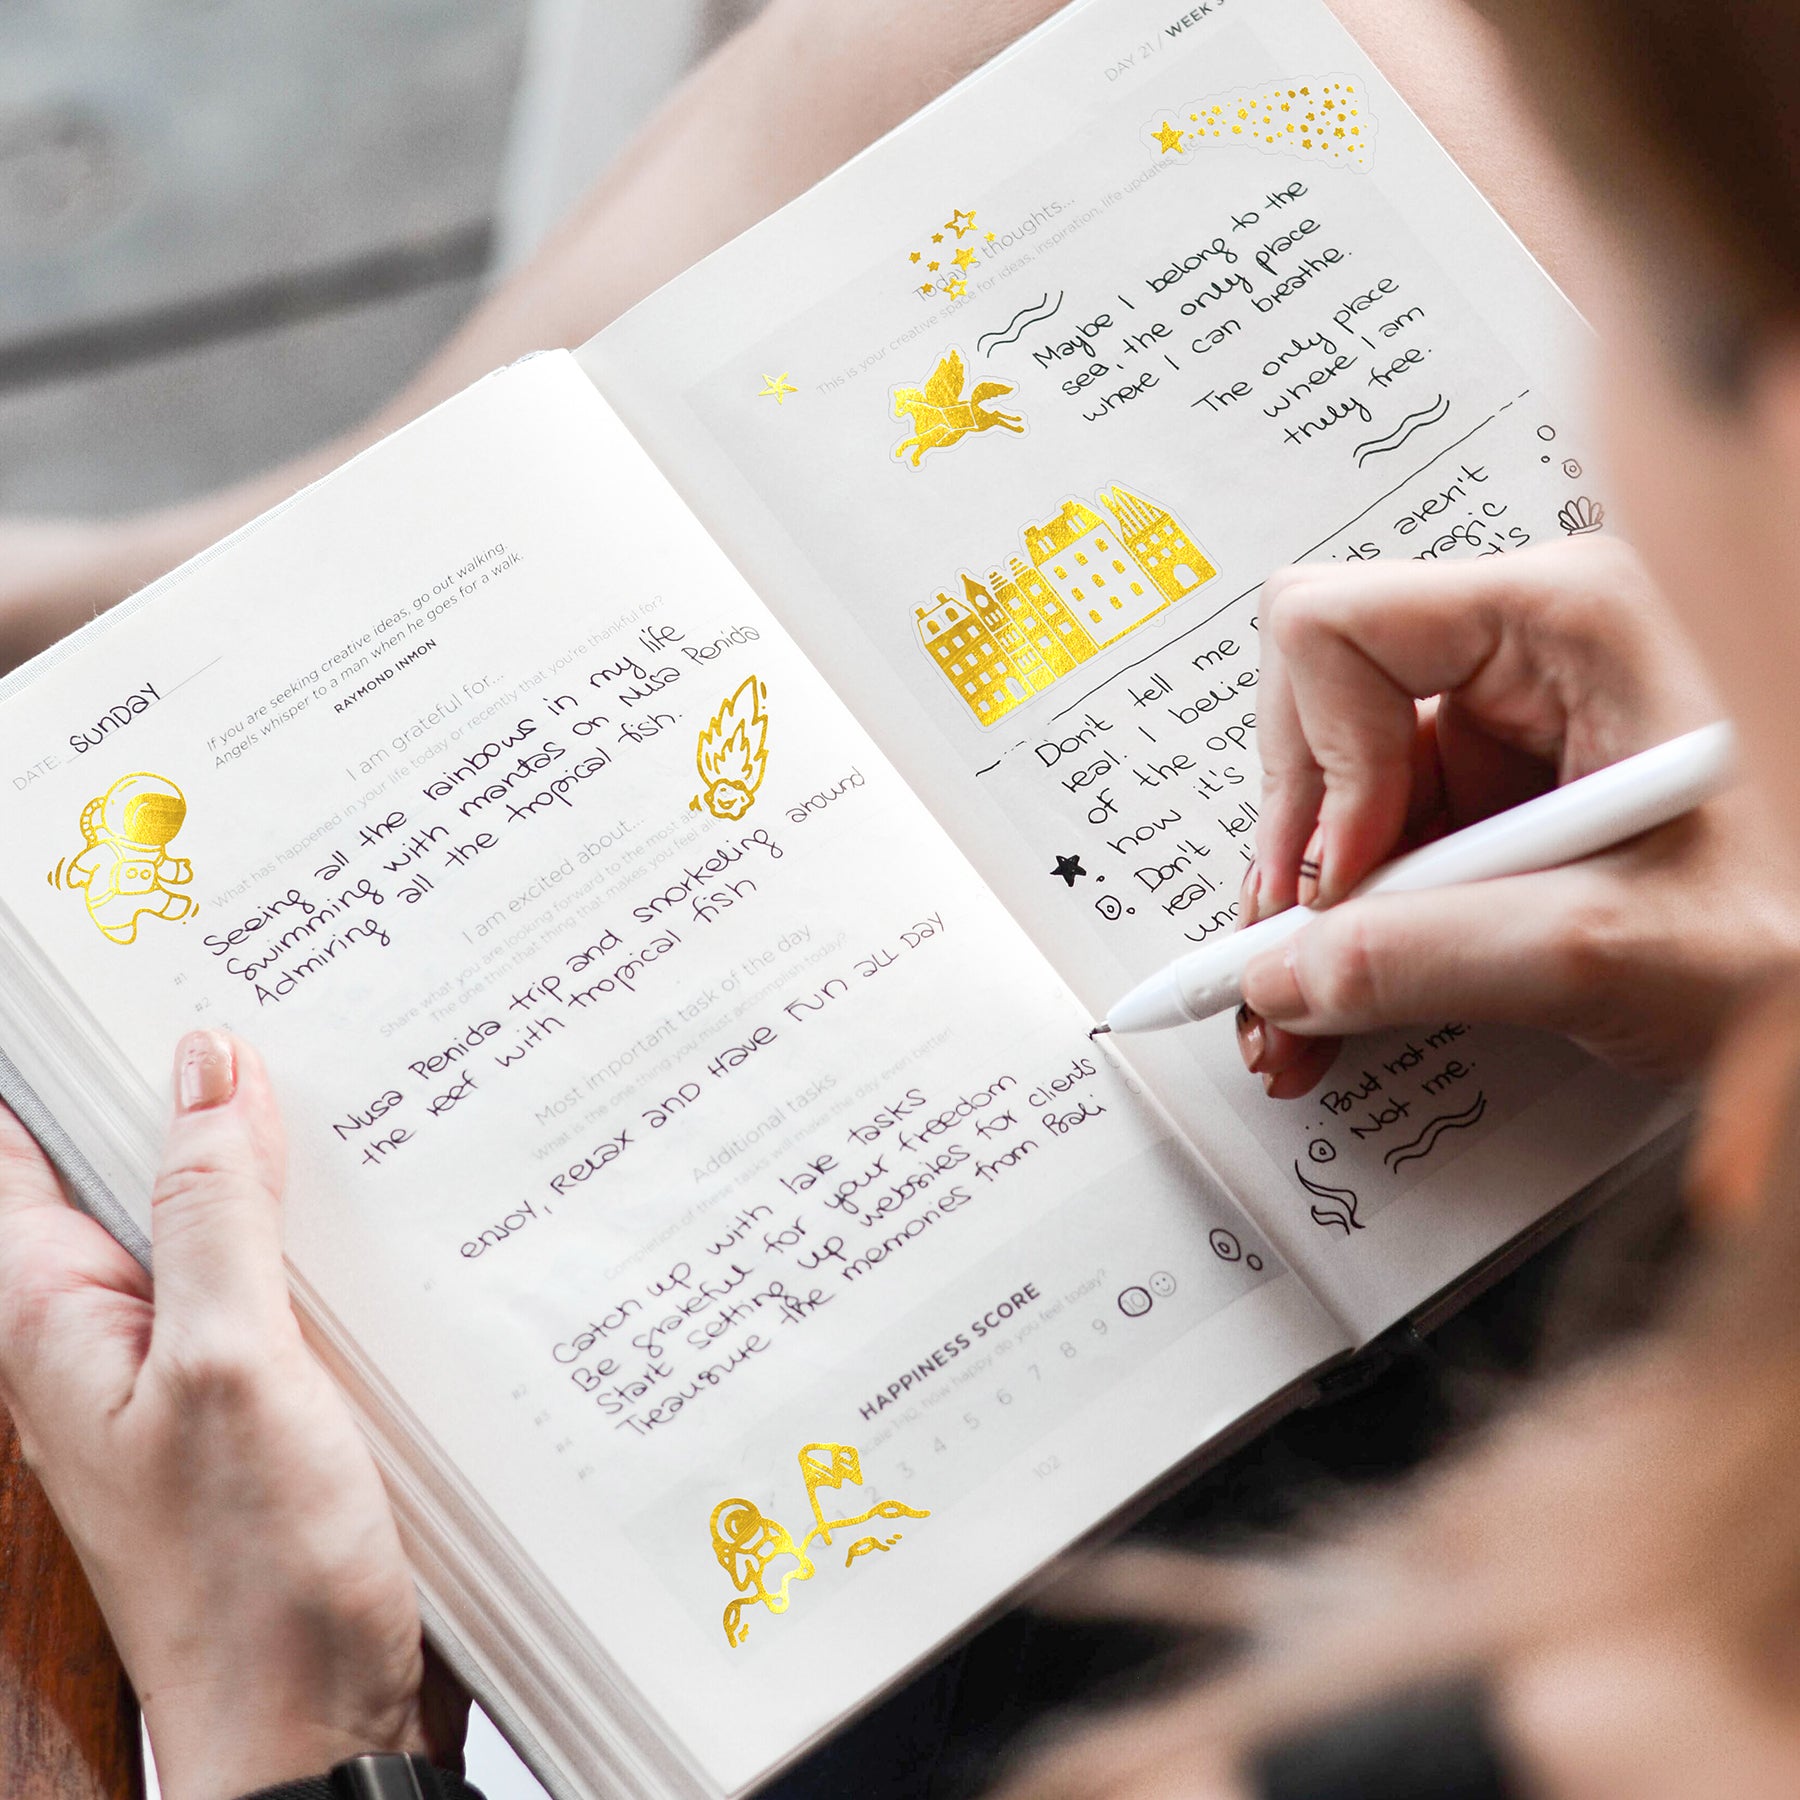 DATE: SUNDAY
If you are seeking creative ideas, go out walking.
Angels whisper to a man when he goes for a walk.
RAYMOND INMON
I am grateful for...
What has happened in your life today or recently that you're thankful for?
#1 Seeing all the rainbows in my life
#2 Swimming with mantas on Nusa Penida
Admiring all the tropical fish.
I am excited about...
Share what you are looking forward to the most
The one thin that thing that makes you feel
Nusa Penida trip and snorkeling around
the reef with tropical fish
Most important task of the day
What is the one thing you must accomplish today?
#1 ENJOY, RELAX AND HAVE FUN ALL DAY
Additional tasks
Completion of these tasks will make the day even better!
#2 Catch up with late tasks
#3 Be grateful for your freedom
#4 Start setting up websites for clients
#5 Treausure the memories from Bali
HAPPINESS SCORE
scale 1-10, how happy do you feel today?
2 3 4 5 6 7 8 9 10
102
DAY 21 / WEEK 3
Today's thoughts...
This is your creative space for ideas, inspiration, life updates, etc.
Maybe I belong to the
sea, the only place
where I can breathe.
The only place
where I am
truly free.
Don't tell me aren't
real. I magic
of the
how it's
Don't tell
real.
But not me.
Not me.